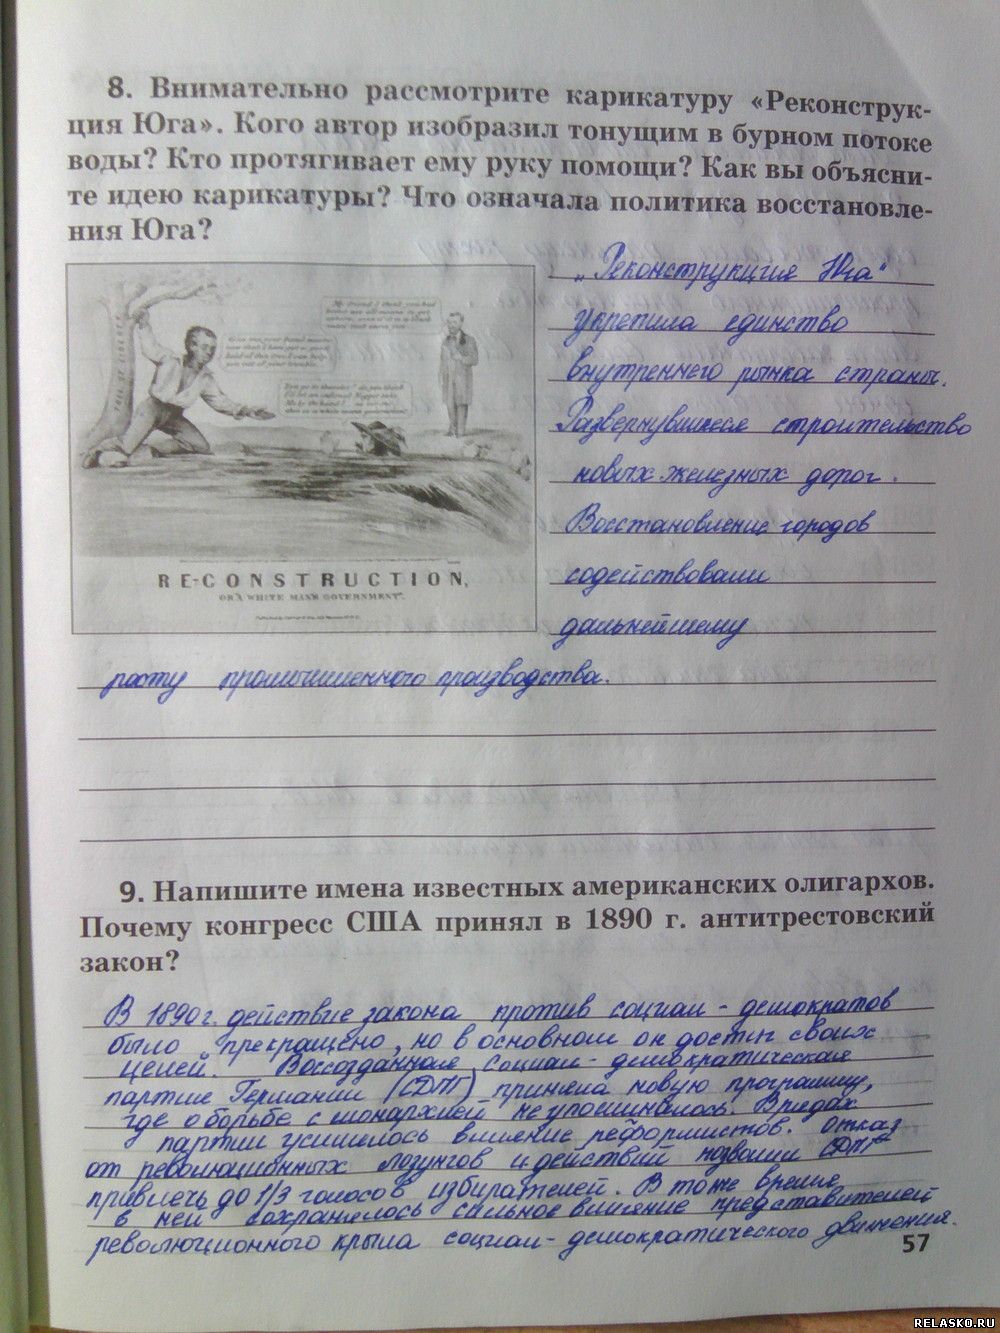 8. Внимательно рассмотрите карикатуру «Реконструк-
ция Юга». Кого автор изобразил тонущим в бурном потоке
воды? Кто протягивает ему руку помощи? Как вы объясни-
те идею карикатуры? Что означала политика восстановле-
ния Юга?
RE-CONSTRUCTION,
OR "A WHITE MAN'S GOVERNMENT".
„Реконструкция Юга"
укрепила единство
внутреннего рынка страны.
Развернувшееся строительство
новых железных дорог.
Восстановление городов
содействовали
дальнейшему
росту промышленного производства.
9. Напишите имена известных американских олигархов.
Почему конгресс США принял в 1890 г. антитрестовский
закон?
В 1890 г. действие закона против социал-демократов
было прекращено, но в основном он достиг своих
целей. Воссозданная социал-демократическая
партия Германии (СДПГ) приняла новую программу,
где о борьбе с монархией не упоминалось. В рядах
партии усилилось влияние реформистов. Отказ
от революционных лозунгов и действий СДПГ
привлечь до 1/3 голосов избирателей. В то же время
в ней сохранялось сильное влияние представителей
революционного крыла социал-демократического движения.
57
RELASKO.RU